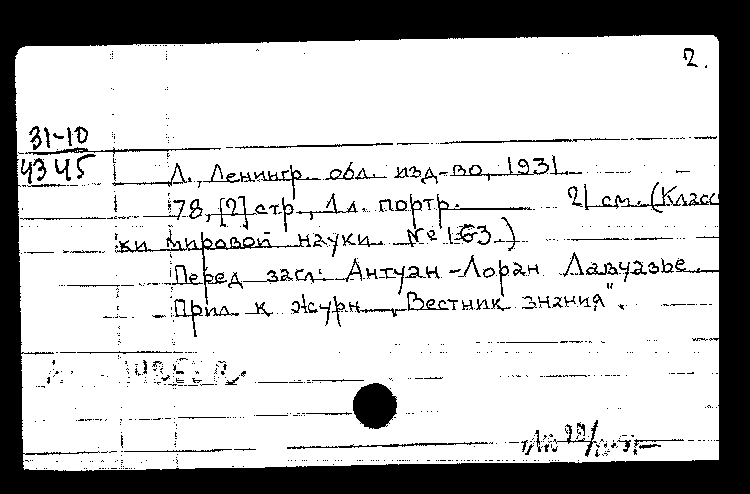 2.
31-10
4345
Л., Ленингр. обл. изд-во, 1931.
78, [2] стр., 1 л. портр. 21 см. (Класс
ки мировой науки. №
Перед загл: Антуан-Лоран Лавуазье.
Прил. к журн. „Вестник знания".